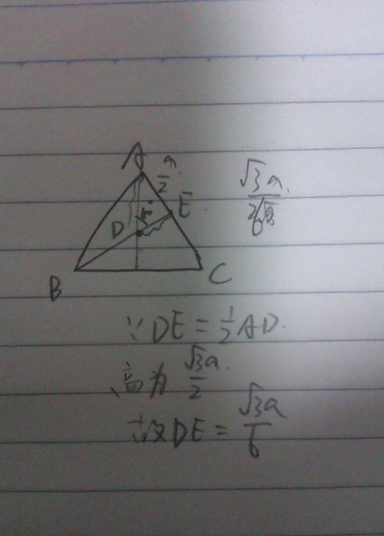 A
a/2
E
D
B
C
√3a
6
∵DE=½AD.
高为 √3a/2
故DE=√3a/6